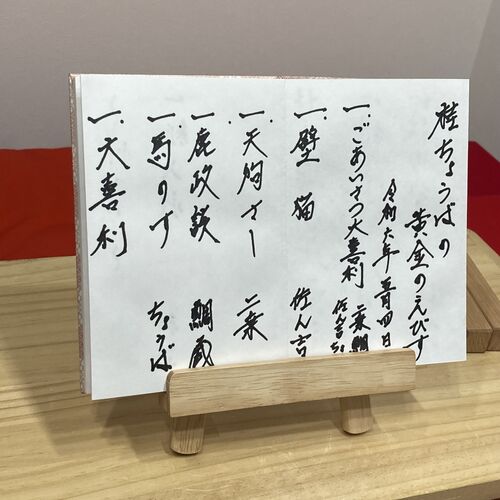 桂ちょうばの
黄金のえびす
令和六年五月四日
一、ごあいさつ大喜利 二葉 鯛蔵 佐ん吉 ちょうば
一、壁猫 佐ん吉
一、天狗さし 二葉
一、鹿政談 鯛蔵
一、馬のす ちょうば
一、大喜利